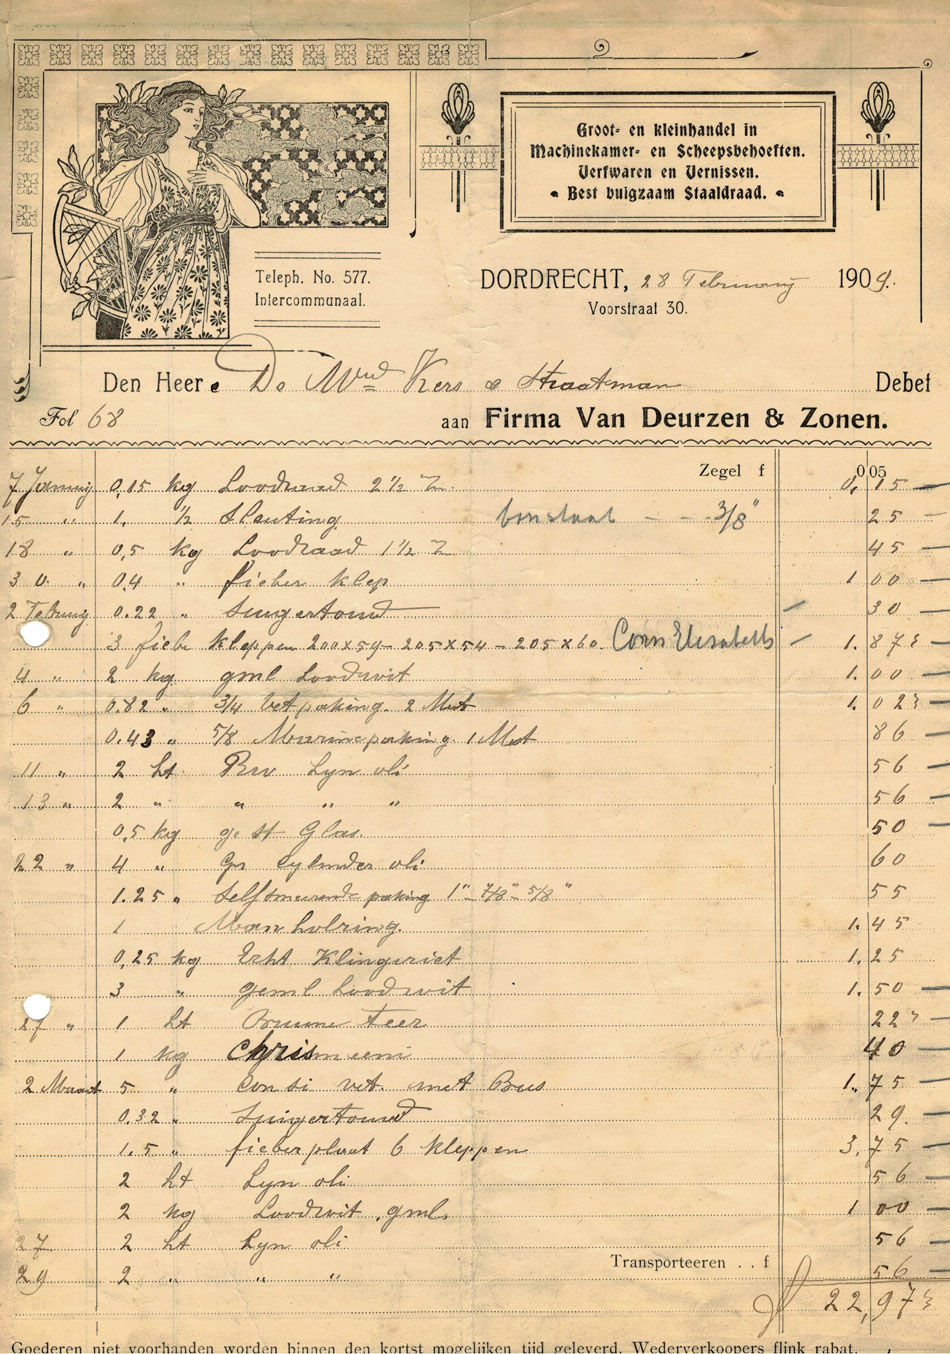 Groot- en kleinhandel in
Machinekamer- en Scheepsbehoeften.
Verfwaren en Vernissen.
Best buigzaam Staaldraad.
Teleph. No. 577.
Intercommunaal.
DORDRECHT, 28 Februarij 1909.
Voorstraat 30.
Den Heere De Wed Kers & Straatman Debet
Fol 68 aan Firma Van Deurzen & Zonen.
Zegel f 0 05
7 0,15 kg Loodraad 2 ½ 0,15
15 " 1. ½ Sleuting 3/8" 25
18 " 0,5 kg Loodraad 1 ½ 45
30 " 0.4 " fieber klep 1 00
2 0.22 " 30
3 fieber kleppen 200x59 - 205x54 - 205x60. Corn Elisabeth 1.87
4 " 2 kg geml Loodwit 1.00
6 " 0.82 " 3/4 vet paking. 2 Met 1.02
0.43 " 5/8 Marine paking 1 Met 86
11 " 2 Lt Rw Lyn oli 56
13 " 2 " " " " 56
0,5 kg Glas. 50
22 " 4 " cylinder oli 60
1.25 " Selfsmeerende paking 1" - 7/8" - 5/8" 55
1 Manholring. 1.45
0,25 kg Echt Klingeriet 1.25
3 " geml Loodwit 1.50
27 " 1 Lt Bruine Teer 22
1 kg 40
2 Maart 5 " consi vet. met Bus 1.75
0.32 " 29.
1.5 " fieberplaat 6 kleppen 3.75
2 Lt Lyn oli 56
2 kg Loodwit geml. 1 00
27 2 Lt Lyn oli 56
29 2 " " " 56
Transporteeren . . f 22,97
Goederen niet voorhanden worden binnen den kortst mogelijken tijd geleverd. Wederverkoopers flink rabat.